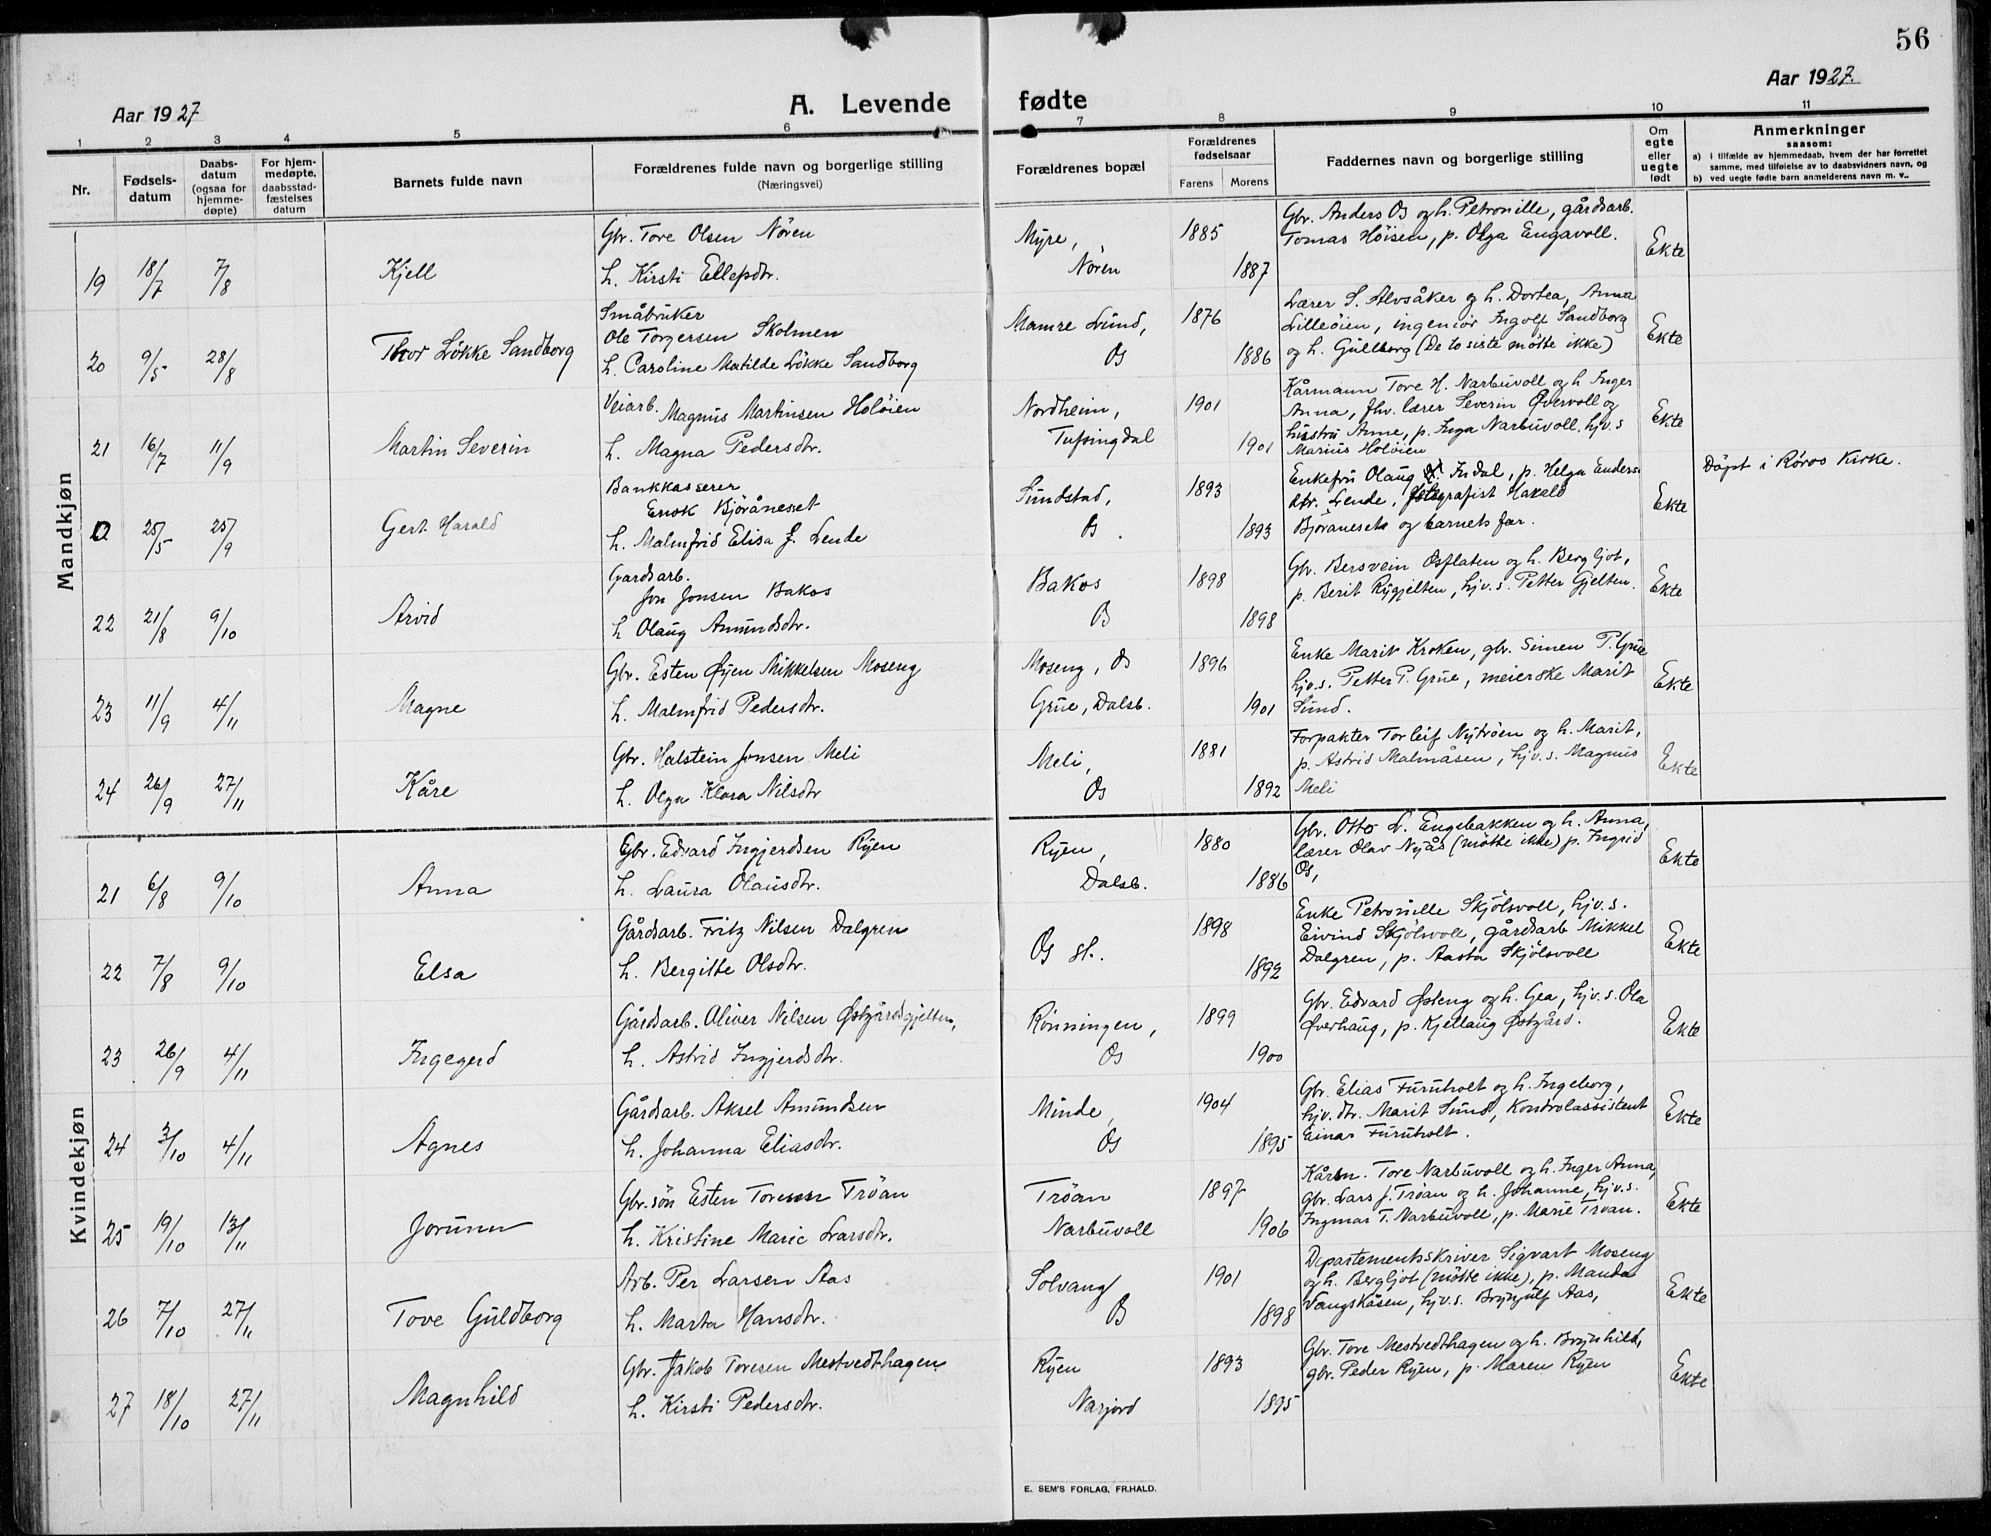 56
Aar 1927
A. Levende fødte
Aar 1927.
1 2 3 4 5 6 7 8 9 10 11
Nr.
Fødsels-
datum
Daabs-
datum
(ogsaa for
hjemme-
døpte)
For hjem-
medøpte,
daabsstad-
fæstelses
datum
Barnets fulde navn
Forældrenes fulde navn og borgerlige stilling
(Næringsvei)
Forældrenes bopæl
Forældrenes
fødselsaar
Farens Morens
Faddernes navn og borgerlige stilling
Om
egte
eller
uegte
født
Anmerkninger
saasom:
a) i tilfælde av hjemmedaab, hvem der har forrettet
samme, med tilføielse av to daabsvidners navn, og
b) ved uegte fødte barn anmelderens navn m. v..
Mandkjøn
19 18/7 7/8 Kjell
Gbr. Tore Olsen Nören
h. Kirsti Ellefsdtr.
Myre,
Nören
1885
1887
Gbr. Anders Os og h. Petronille, gårdsarb.
Tomas Höisen, p. Olga Engavoll.
Ekte
20 9/5 28/8 Thor Lökke Sandborg
Småbruker
Ole Torgersen Skolmen
h. Caroline Matilde Lökke Sandborg
Mamre Lund,
Os
1876
1886
Lærer S. Alvsåker og h. Dortea, Anna
Lilleöien, ingeniör Ingolf Sandborg
og h. Gullborg (De to siste mötte ikke)
Ekte
21 16/7 11/9 Martin Severin
Veiarb. Magnus Martinsen Holöien
h. Magna Pedersdtr.
Nordheim,
Tufsingdal
1901
1901
Kårmann Tore H. Narbuvoll og h Inger
Anna, fhv. lærer Severin Övervoll og
hustru Anne, p. Inga Narbuvoll, hjv.s
Marius Holöien
Ekte
0 25/5 25/9 Gert Harald
Bankkasserer
Enok Björåneset
h. Malmfrid Elisa J. Lende
Sundstad,
Os.
1893
1893
Enkefru Olaug Indal, p. Helga Enders-
dtr. Lende, fotografist Harald
Björaneset og barnets far.
Ekte
Döpt i Röros Kirke.
22 21/8 9/10 Arvid
Gardsarb.
Jon Jonsen Bakos
h Olaug Amundsdtr.
Bakos
Os
1898
1898
Gbr. Bersvein Osflaten og h. Bergljot,
p. Berit Rygjelten, hjv.s. Petter Gjelten.
Ekte
23 11/9 4/11 Magne
Gbr. Esten Øyen Mikkelsen Moseng
h. Malmfrid Pedersdtr.
Moseng, Os
Grue, Dalsb.
1896
1901
Enke Marit Kroken, gbr. Simen P. Grue
hjv.s. Petter P. Grue, meierske Marit
Sund.
Ekte
24 26/9 27/11 Kåre
Gbr. Halstein Jonsen Meli
h. Olga Klara Nilsdtr
Meli,
Os
1881
1892
Forpakter Torleif Nytröen og h. Marit,
p. Astrid Malmåsen, hjv.s. Magnus
Meli
Ekte
Kvindekjøn
21 6/8 9/10 Anna
Gbr. Edvard Ingjerdsen Ryen
h. Laura Olausdtr.
Ryen,
Dalsb.
1880
1886
Gbr. Otto L. Engebakken og h. Anna,
lærer Olav Nyås (mötte ikke) p. Ingrid
Os,
Ekte
22 7/8 9/10 Elsa
Gårdsarb. Fritz Nilsen Dalgren
h. Bergitte Olsdtr.
Os st..
1898
1892
Enke Petronille Skjölsvoll, hjv.s.
Eivind Skjölsvoll, gårdsarb Mikkel
Dalgren, p. Aasta Skjölsvoll
Ekte
23 26/9 4/11 Ingegerd
Gårdsarb. Oliver Nilsen Østgårdsgjelten,
h. Astrid Ingjerdsdtr.
Rönningen,
Os
1899
1900
Gbr. Edvard Østeng og h. Gea, hjv.s. Ola
Øverhaug, p. Kjellaug Østgård.
Ekte
24 3/10 4/11 Agnes
Gårdsarb. Aksel Amundsen
h. Johanna Eliasdtr.
Minde,
Os
1904
1895
Gbr. Elias Furuholt og h. Ingeborg,
hjv. dtr. Marit Sund, Kontrolassistent
Einar Furuholt.
Ekte
25 19/10 13/11 Jorunn
Gbr.sön Esten Toresen Tröan
h. Kristine Marie Larsdtr.
Tröan
Narbuvoll
1897
1906
Kårm. Tore Narbuvoll og h. Inger Anna,
gbr. Lars J. Tröan og h. Johanne, hjv.s.
Ingmar T. Narbuvoll, p. Marie Tröan.
Ekte
26 7/10 27/11 Tove Guldborg
Arb. Per Larsen Aas
h. Marta Hansdtr.
Solvang
Os
1901
1898
Departementsskriver Sigvart Moseng
og h. Bergljot (mötte ikke), p. Manda
Vangskåsen, hjv.s. Brynjulf Aas,
Ekte
27 18/10 27/11 Magnhild
Gbr. Jakob Toresen Mestvedthagen
h. Kirsti Pedersdtr.
Ryen
Narjord
1893
1895
Gbr. Tore Mestvedthagen og h. Brynhild,
gbr. Peder Ryen, p. Maren Ryen
Ekte
E. SEM'S FORLAG, FR.HALD.